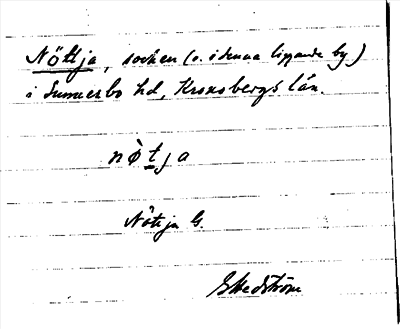 Nöttja, socken (o. i denna liggande by)
i Sunnerbo hd, Kronobergs län.
nòtja
Nötja G.